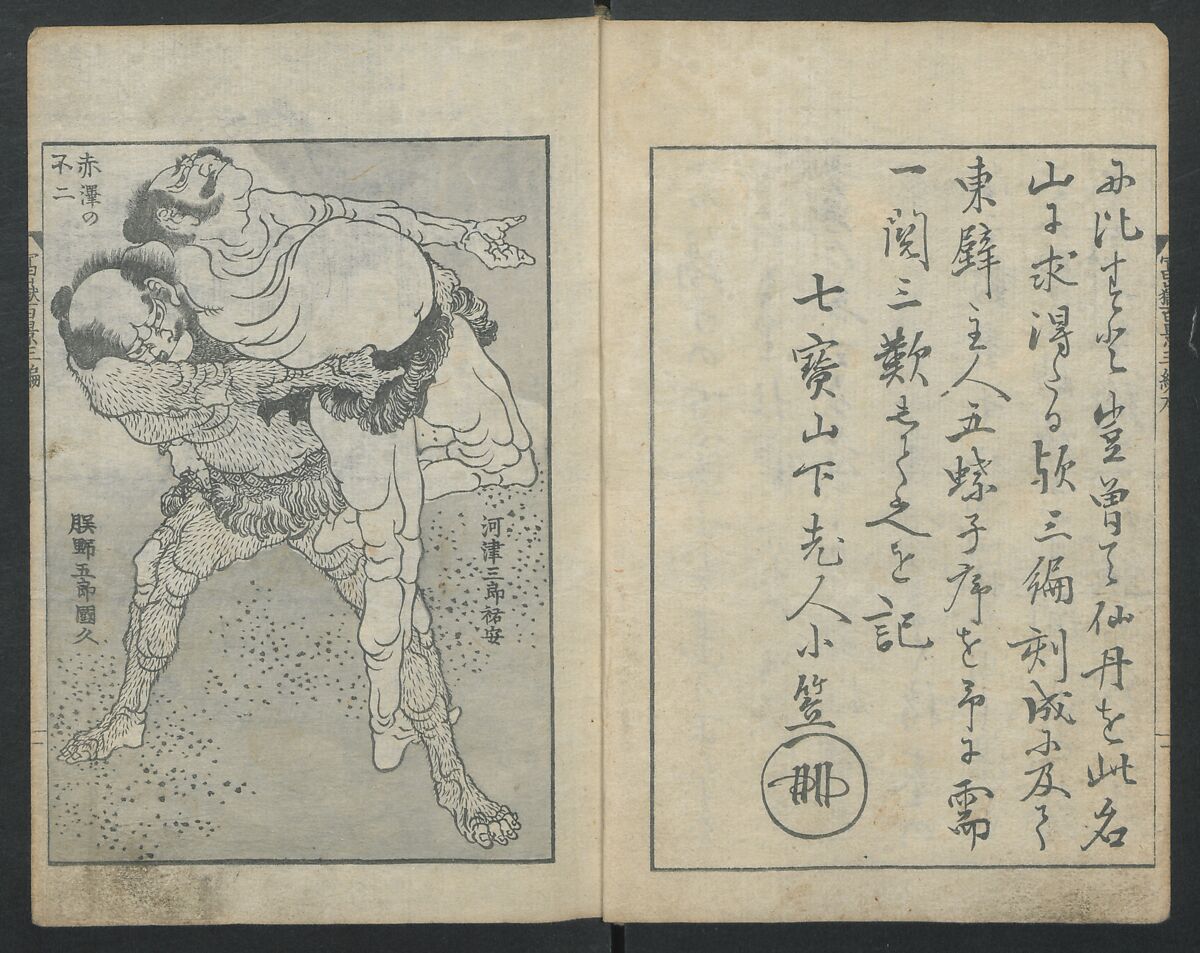 に比すれと豈曽て仙丹を此名
山に求得たる歟三編刻成に及て
東壁主人五蝶子序を予に需
一閲三歎して之を記
七寶山下老人小笠
富嶽百景三編
赤澤の
不二
河津三郎祐安
股野五郎國久
富嶽百景三編
一